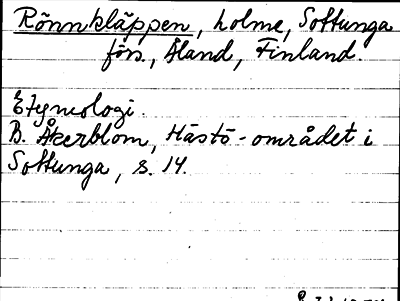 Rönnkläppen, holme, Sottunga
förs., Åland, Finland.
Etymologi.
B. Åkerblom, Hästö-området i
Sottunga, s. 14.